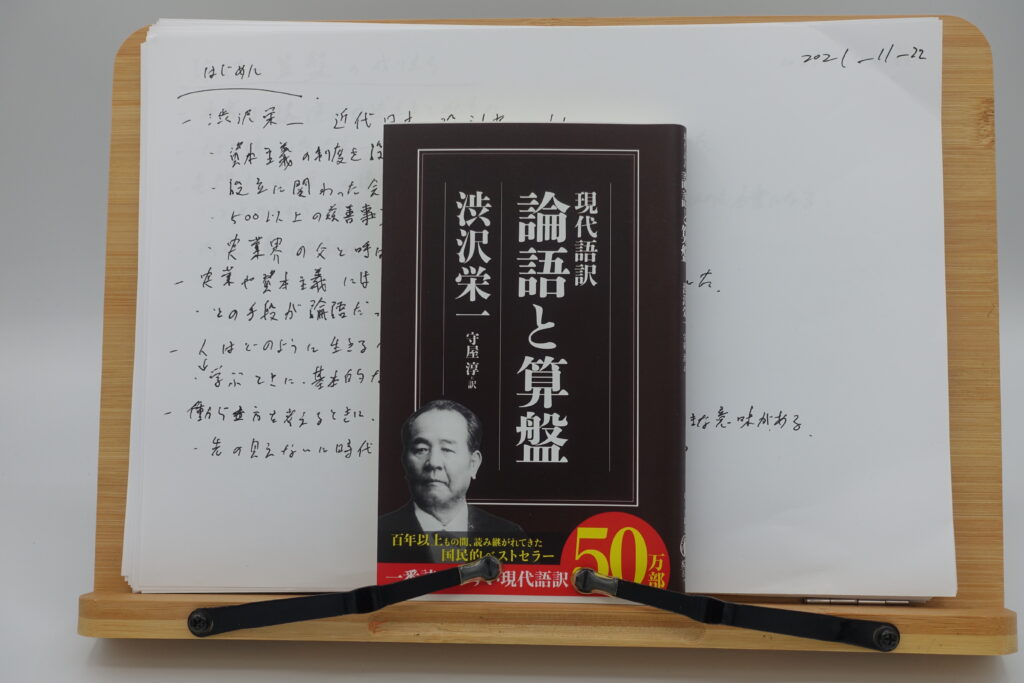 はじめに
2021-11-22
- 渋沢栄一 近代日本
・資本主義の制度を設
・設立に関わった会
・500以上の慈善事
・実業界の父と呼ば
- 実業や資本主義には
た.
・その手段が論語だっ
- 人はどのように生きる
・学ぶときに、基本的な
- 働き方を考えるときに、
な意味がある.
・先の見えない時代
現代語訳
論語と算盤
渋沢栄一
守屋淳・訳
百年以上もの間、読み継がれてきた
国民的ベストセラー
50万部
一番
現代語訳